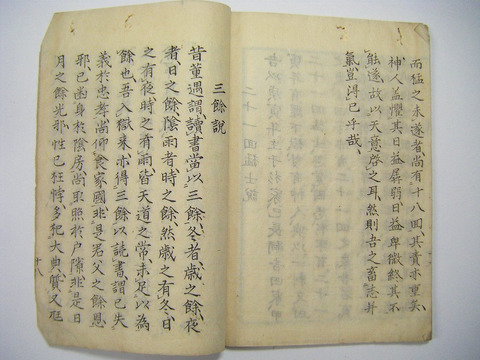 而猛之未遂者尚有十八回、其責亦重矣、
神人蓋懼其日益孱弱日益卑微終其不
能遂故以天意啓之耳、然則吾之蓄志并
氣豈得已乎哉、
三餘說
昔董遇謂讀書當以三餘、冬者歳之餘夜
者、日之餘陰雨者時之餘然歳之有冬、日
之有夜、時之有雨皆天道之常、未足以為
餘也吾入獄来、亦得三餘以読書謂已失
義於忠孝尚仰食家國非是君父之餘恩
邪、已幽身於陰房尚取照於戸隙非是日
月之餘光邪、性已狂悖多犯大典
十八